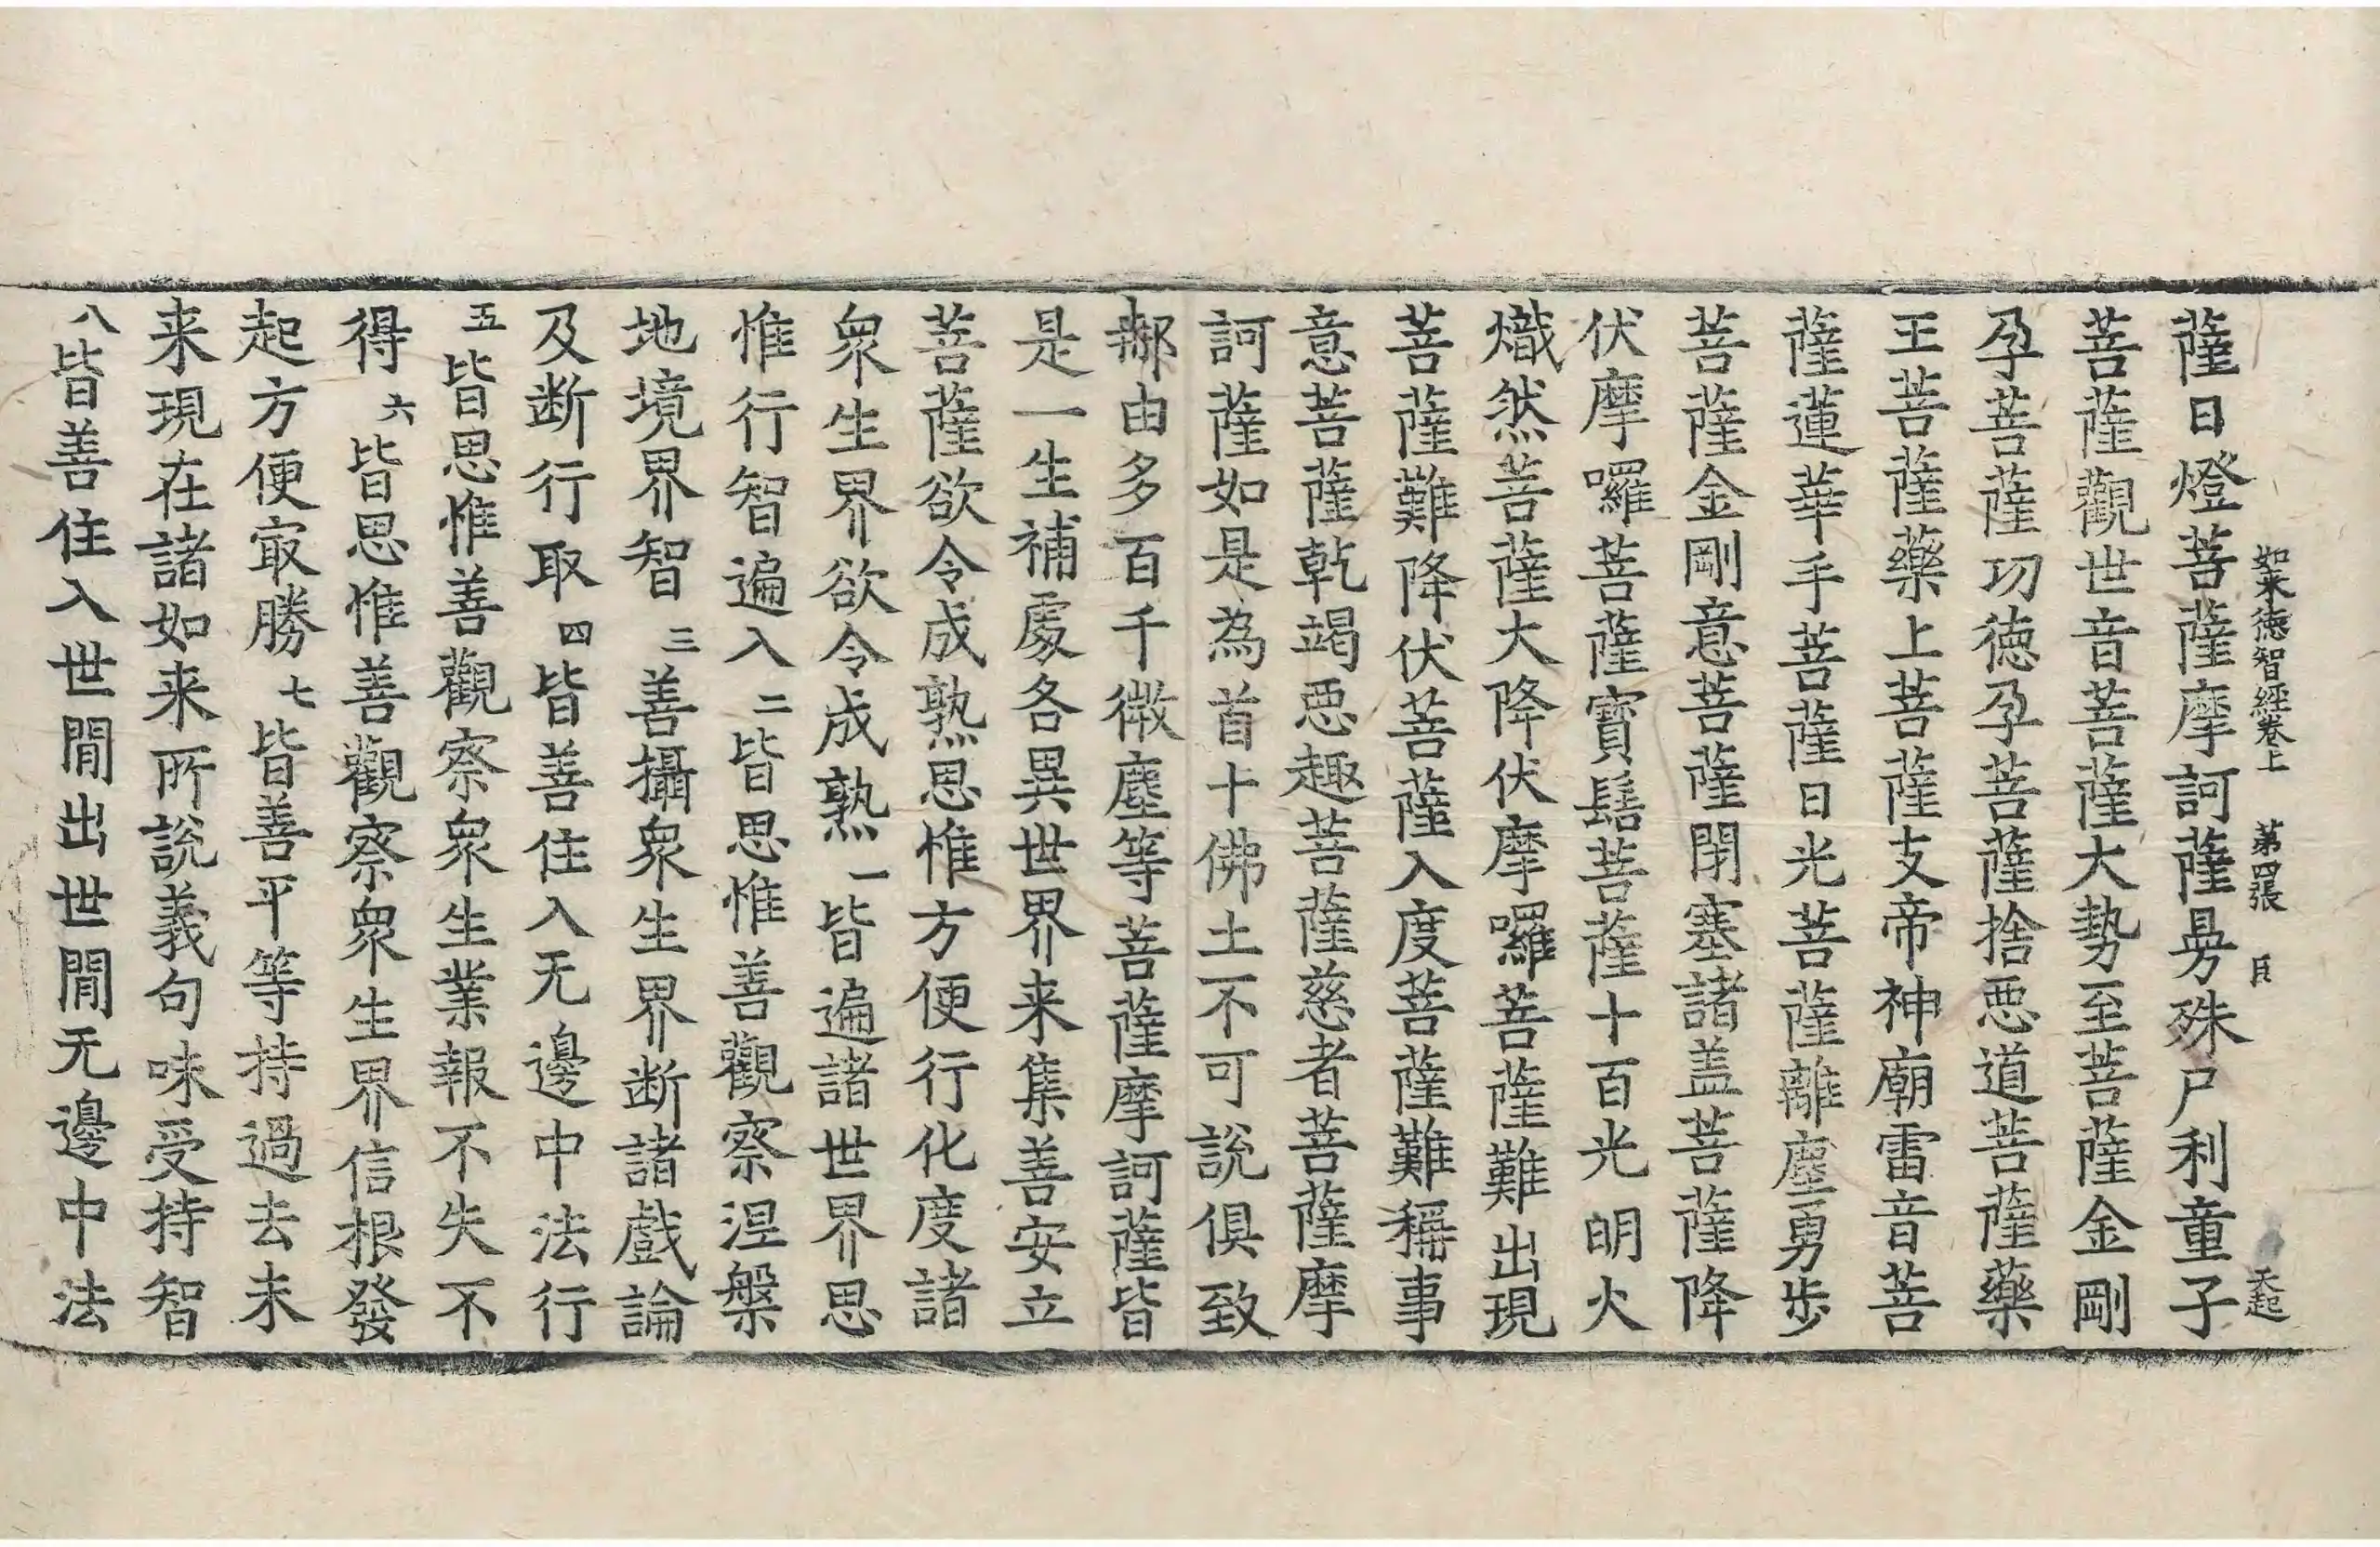 如来德智經卷上　第四張　㒵
天起
薩日燈菩薩摩訶薩㬅殊尸利童子
菩薩觀世音菩薩大勢至菩薩金剛
孕菩薩功德孕菩薩捨惡道菩薩藥
王菩薩藥上菩薩支帝神廟雷音菩
薩蓮華手菩薩日光菩薩離塵勇步
菩薩金剛意菩薩閉塞諸盖菩薩降
伏摩囉菩薩寶髻菩薩十百光明火
熾然菩薩大降伏摩囉菩薩難出現
菩薩難降伏菩薩入度菩薩難稱事
意菩薩乾竭惡趣菩薩慈者菩薩摩
訶薩如是為首十佛土不可說俱致
郍由多百千微塵等菩薩摩訶薩皆
是一生補處各異世界来集善安立
菩薩欲令成熟思惟方便行化度諸
衆生界欲令成熟一皆遍諸世界思
惟行智遍入二皆思惟善觀察涅槃
地境界智三善攝衆生界断諸戲論
及断行取四皆善住入无邊中法行
五皆思惟善觀察衆生業報不失不
得六皆思惟善觀察衆生界信根發
起方便㝡勝七皆善平等持過去未
来現在諸如来所說義句味受持智
八皆善住入世間出世間无邊中法